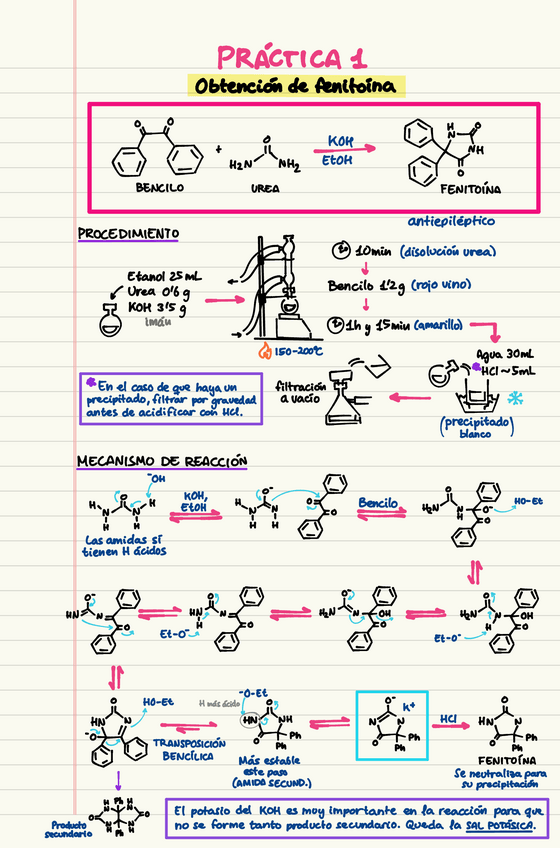 PRÁCTICA 1
Obtención de fenitoína
O
O
+
O
H₂N
NH₂
KOH
EtOH
H
N
O
NH
O
BENCILO
UREA
FENITOÍNA
antiepiléptico
PROCEDIMIENTO
Etanol 25 mL
Urea 0'6 g
KOH 3'5 g
imán
150-200ºC
10min (disolución urea)
Bencilo 1'2g (rojo vino)
1h y 15min (amarillo)
Agua 30mL
*HCl ~5mL
(precipitado)
blanco
filtración
a vacío
* En el caso de que haya un
precipitado, filtrar por gravedad
antes de acidificar con HCl.
MECANISMO DE REACCIÓN
⁻OH
KOH,
EtOH
Bencilo
HO-Et
Las amidas sí
tienen H ácidos
Et-O⁻
Et-O⁻
HO-Et
TRANSPOSICIÓN
BENCÍLICA
H más ácido
-O-Et
Más estable
este paso
(AMIDA SECUND.)
h⁺
HCl
Ph
Ph
FENITOÍNA
Se neutraliza para
su precipitación
Producto
secundario
El potasio del KOH es muy importante en la reacción para que
no se forme tanto producto secundario. Queda la SAL POTÁSICA.